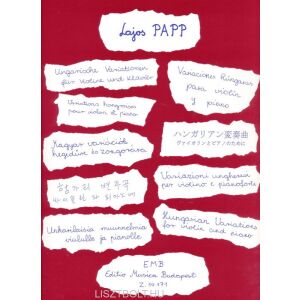 Lajos PAPP
Ungarische Variationen
für Violine und Klavier
Variaciones húngaras
para violín
y piano
Variations hongroises
pour violon et piano
ハンガリアン変奏曲
ヴァイオリンとピアノのために
Magyar variációk
hegedűre és zongorára
헝가리 변주곡
Variazioni ungheresi
per violino e pianoforte
Unkarilaisia muunnelmia
viululle ja pianolle
Hungarian Variations
for violin and piano
EMB
Editio Musica Budapest
LISZTBOLT.HU